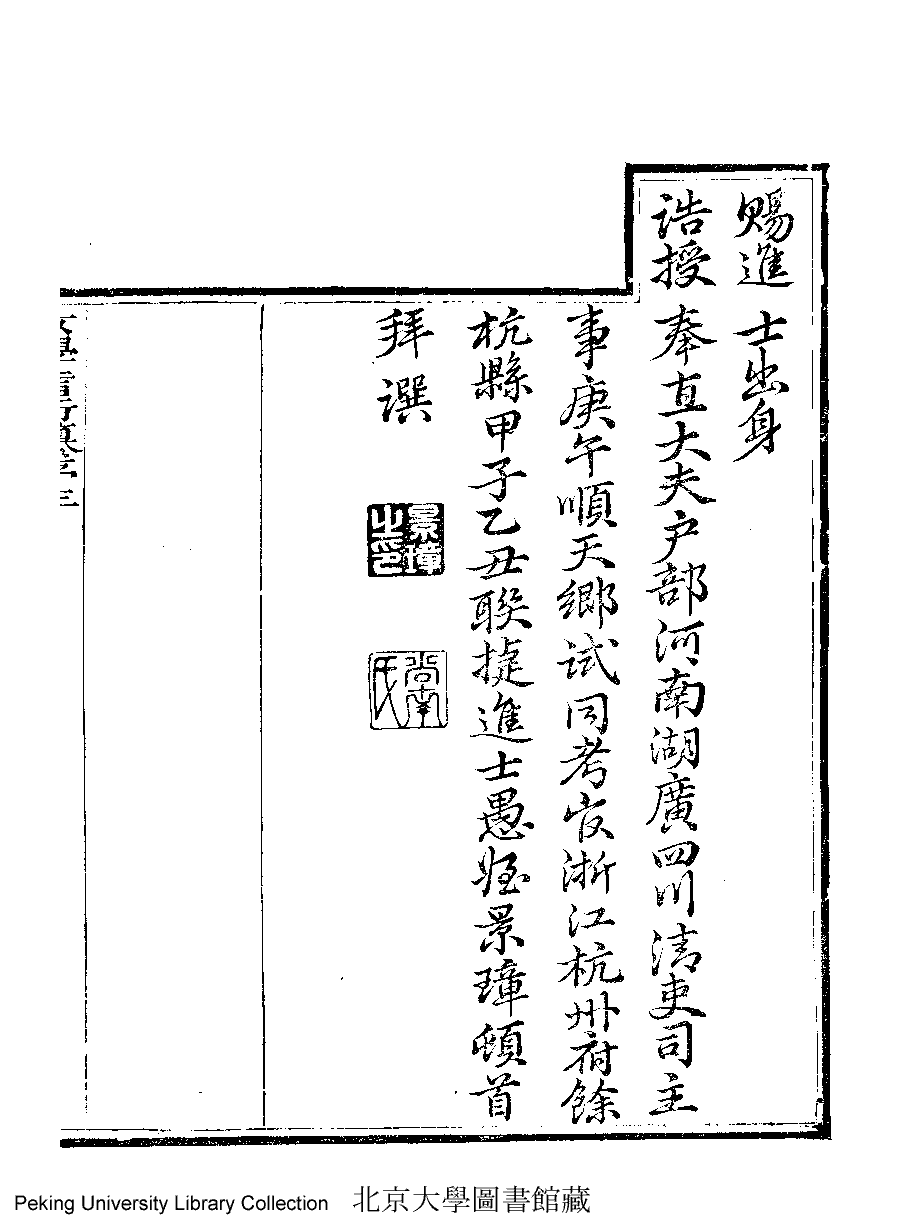 賜進士出身
誥授奉直大夫户部河南湖廣四川清吏司主
事庚午順天鄉試同考官浙江杭州府餘
杭縣甲子乙丑聯捷進士愚姪景璋頓首
拜譔
景璋之印
Peking University Library Collection 北京大學圖書館藏